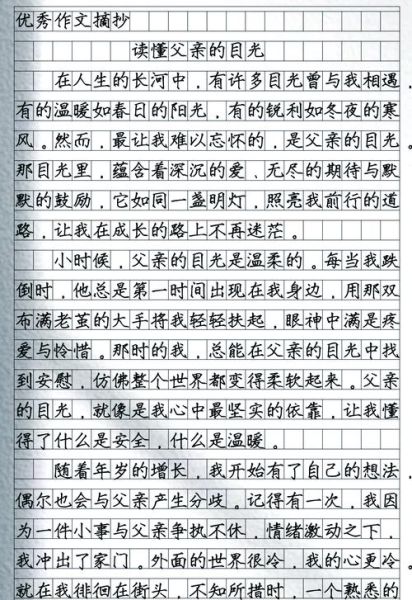 优秀作文摘抄
读懂父亲的目光
在人生的长河中，有许多目光曾与我相遇，
有的温暖如春日的阳光，有的锐利如冬夜的寒
风。然而，最让我难以忘怀的，是父亲的目光。
那目光里，蕴含着深沉的爱、无尽的期待与默
默的鼓励，它如同一盏明灯，照亮我前行的道
路，让我在成长的路上不再迷茫。
小时候，父亲的目光是温柔的。每当我跌
倒时，他总是第一时间出现在我身边，用那双
布满老茧的大手将我轻轻扶起，眼神中满是疼
爱与怜惜。那时的我，总能在父亲的目光中找
到安慰，仿佛整个世界都变得柔软起来。父亲
的目光，就像是我心中最坚实的依靠，让我懂
得了什么是安全，什么是温暖。
随着年岁的增长，我开始有了自己的想法，
偶尔也会与父亲产生分歧。记得有一次，我因
为一件小事与父亲争执不休，情绪激动之下，
我冲出了家门。外面的世界很冷，我的心更冷。
就在我徘徊在街头，不知所措时，一个熟悉的